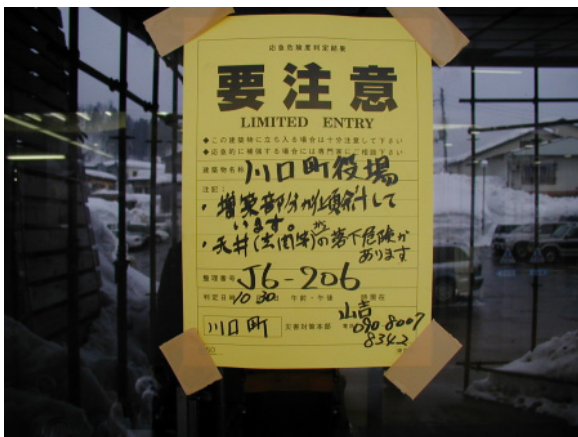 応急危険度判定結果
要注意
LIMITED ENTRY
◆この建築物に立ち入る場合は十分注意して下さい
◆応急的に補強する場合には専門家にご相談下さい
建築物名称 川口町役場
注記:
・増築部分が傾斜して
います。
・天井(玄関等)の落下危険が
あります
整理番号 J6-206
判定日時 10 30 午前・午後 時現在
川口町 災害対策本部 電話 090 8007
8342